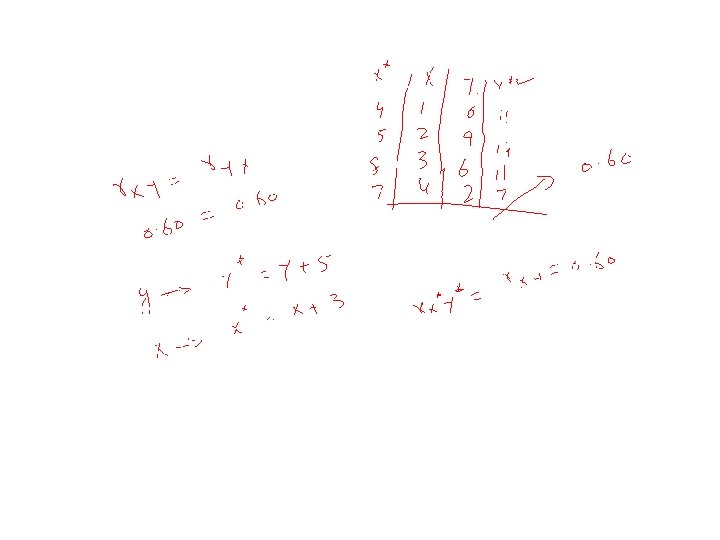 x* | x | y | y*
4 | 1 | 6 | 11
5 | 2 | 9 | 14
8 | 3 | 6 | 11
7 | 4 | 2 | 7
0.60
rxy = ryx
0.60 = 0.60
y → y* = y + 5
x → x* = x + 3
rx*y* = rxy = 0.60